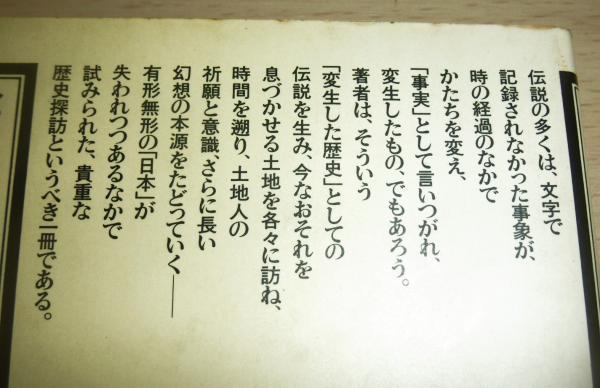 伝説の多くは、文字で
記録されなかった事象が、
時の経過のなかで
かたちを変え、
「事実」として言いつがれ、
変生したもの、でもあろう。
著者は、そういう
「変生した歴史」としての
伝説を生み、今なおそれを
息づかせる土地を各々に訪ね、
時間を遡り、土地人の
祈願と意識、さらに長い
幻想の本源をたどっていく——
有形無形の「日本」が
失われつつあるなかで
試みられた、貴重な
歴史探訪というべき一冊である。